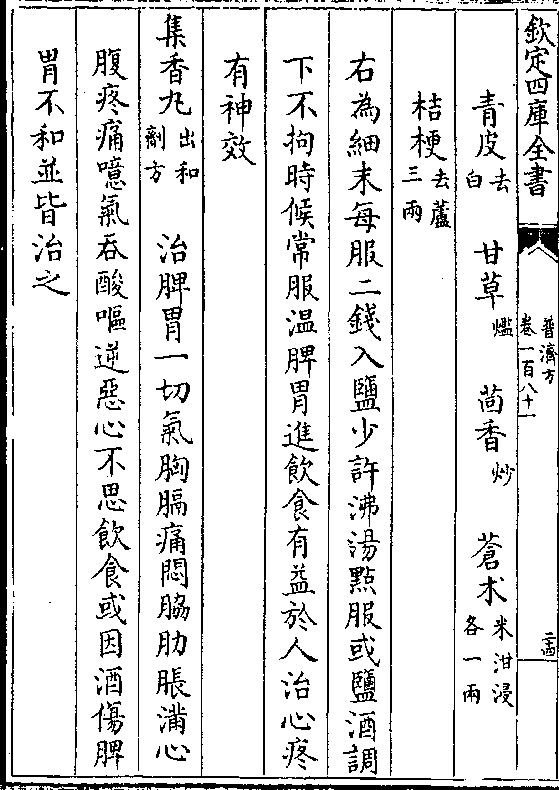 欽定四庫全書
普濟方
卷一百八十一
二十四
青皮去白 甘草爁 茴香炒 蒼术米泔浸各一兩
桔梗去蘆三兩
右為細末每服二錢入鹽少許沸湯點服或鹽酒調
下不拘時候常服温脾胃進飲食有益於人治心疼
有神效
集香丸出和劑方 治脾胃一切氣胸膈痛悶脇肋脹滿心
腹疼痛噫氣吞酸嘔逆惡心不思飲食或因酒傷脾
胃不和並皆治之